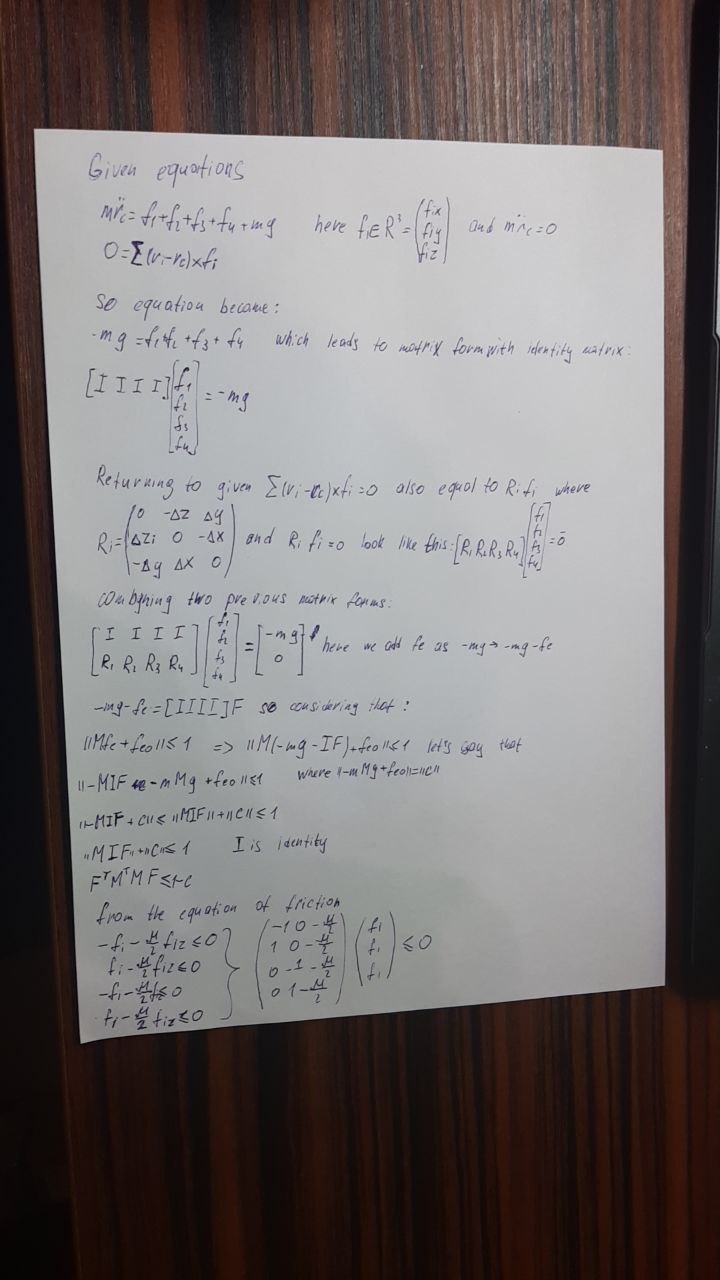 Given equations
mr̈c = f1+f2+f3+f4+mg here fi∈R³ = (fix fiy fiz) and mr̈c=0
0=Σ(ri-rc)×fi
so equation became:
-mg = f1+f2+f3+f4 which leads to matrix form with identity matrix:
[I I I I] [f1 f2 f3 f4] = -mg
Returning to given Σ(ri-rc)×fi=0 also equal to Rifi where
Ri = (0 -Δz Δy
Δzi 0 -Δx
-Δy Δx 0) and Ri fi=0 look like this: [R1 R2 R3 R4] [f1 f2 f3 f4] = 0̄
combyning two previous matrix forms:
[I I I I
R1 R2 R3 R4] [f1 f2 f3 f4] = [-mg 0] here we add fe as -mg → -mg-fe
-mg-fe=[I I I I]F so considering that:
||Mfe+feo||≤1 => ||M(-mg-IF)+feo||≤1 let's say that
||-MIF -mMg +feo||≤1 where ||-mMg+feo||=||C||
||-MIF+C||≤||MIF||+||C||≤1
||MIF||+||C||≤1 I is identity
FᵀMᵀMF≤1-C
from the equation of friction
-fi-μ/2 fiz≤0
fi-μ/2 fiz≤0
-fi-μ/2 fiz≤0
fi-μ/2 fiz≤0
(-1 0 -μ/2
1 0 -μ/2
0 -1 -μ/2
0 1 -μ/2) (fi fi fi) ≤0